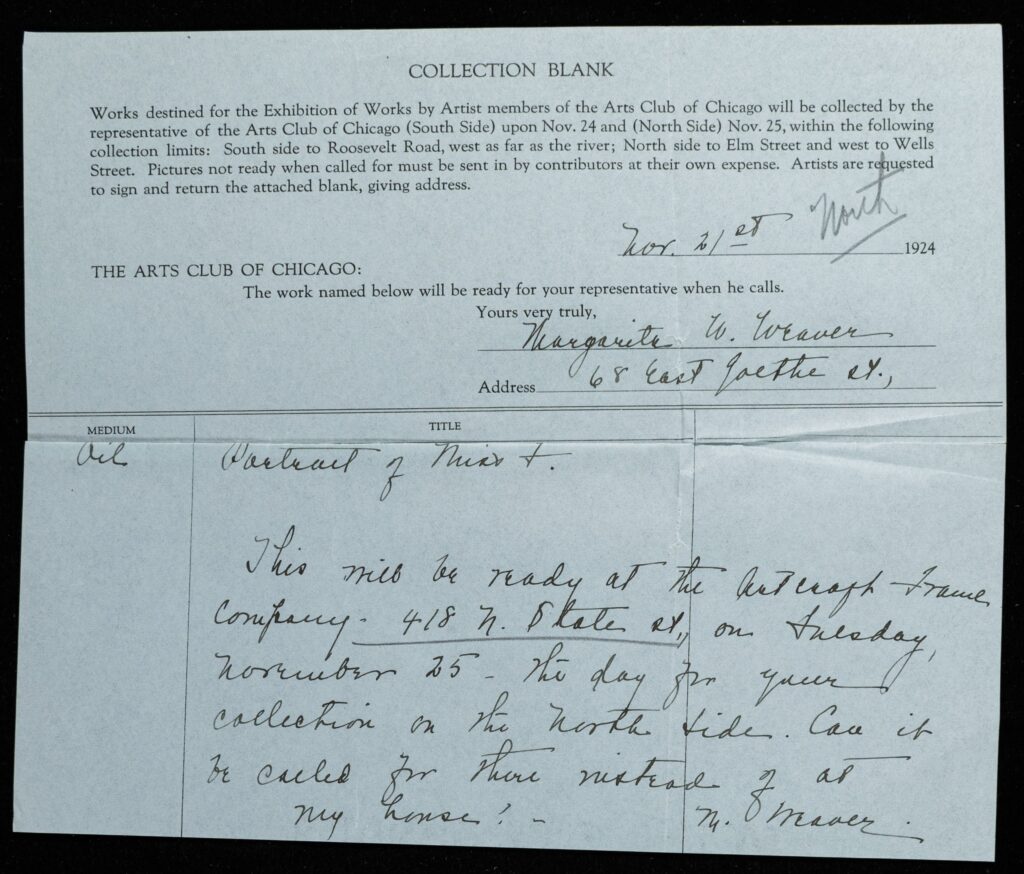 COLLECTION BLANK
Works destined for the Exhibition of Works by Artist members of the Arts Club of Chicago will be collected by the
representative of the Arts Club of Chicago (South Side) upon Nov. 24 and (North Side) Nov. 25, within the following
collection limits: South side to Roosevelt Road, west as far as the river; North side to Elm Street and west to Wells
Street. Pictures not ready when called for must be sent in by contributors at their own expense. Artists are requested
to sign and return the attached blank, giving address.
North
Nov. 21st 1924
THE ARTS CLUB OF CHICAGO:
The work named below will be ready for your representative when he calls.
Yours very truly,
Margarita W. Weaver
Address 68 East Goethe St.,
MEDIUM TITLE
Oil Portrait of Miss
This will be ready at the Artcraft Frame
Company - 418 N. State St., on Tuesday,
November 25 - the day for your
collection on the North Side. Can it
be called for there instead of at
my house? -
M. Weaver.